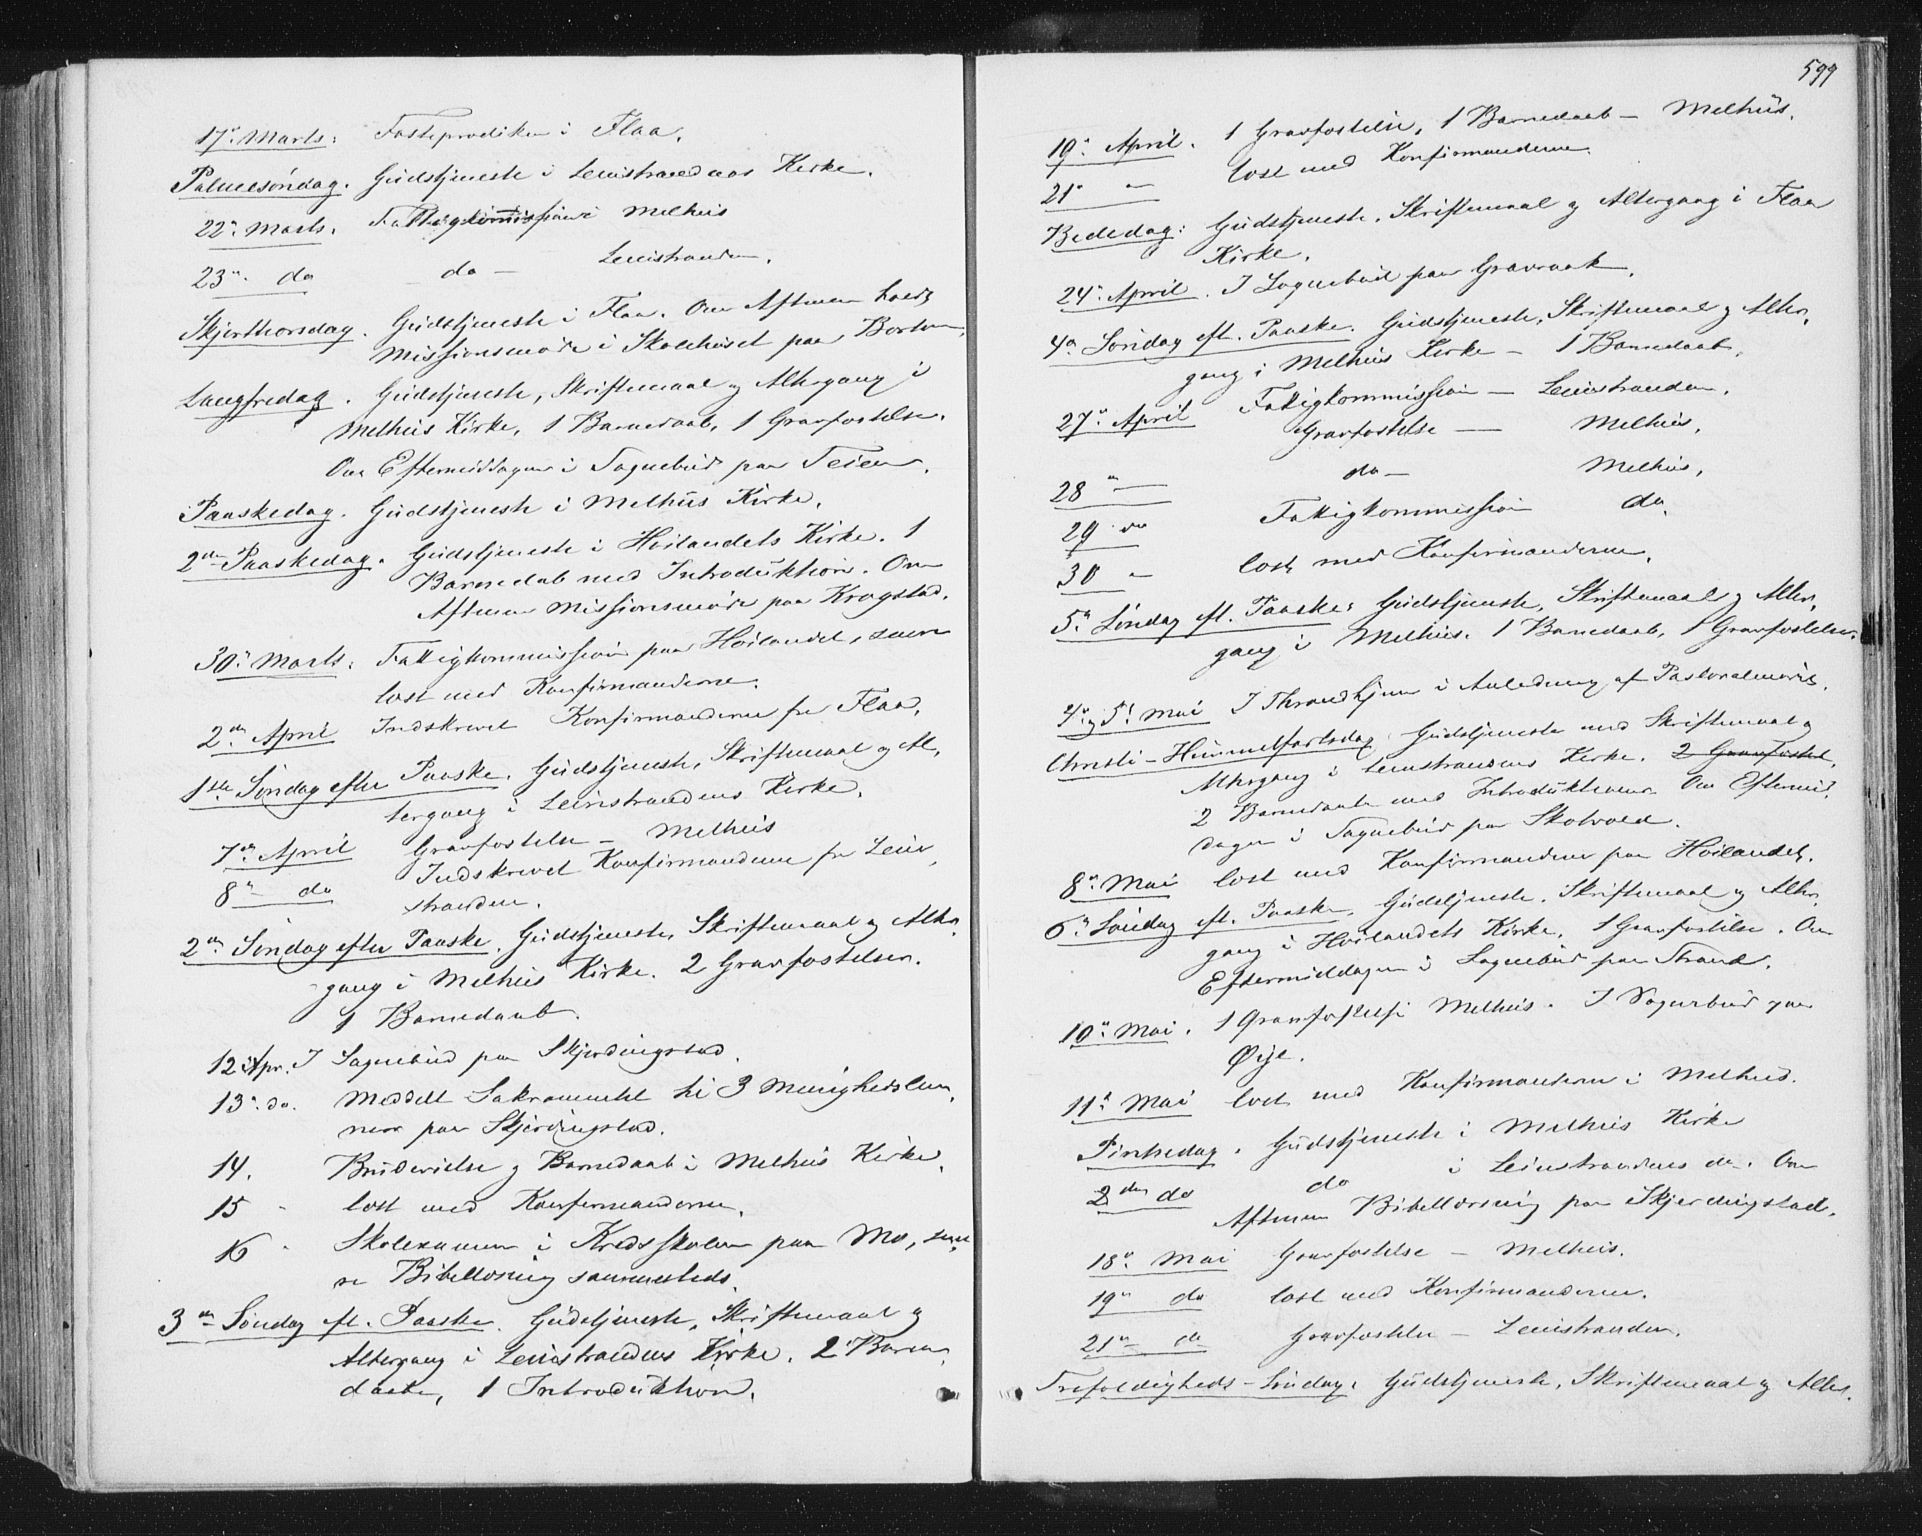 17de Marts: Fasteprædiken i Flaa.
Palmesøndag. Gudstjeneste i Leinstrandens Kirke.
22de Marts. Fattigkommission i Melhus
23de do do — Leinstranden.
Skjærthorsdag. Gudstjeneste i Flaa. Om Aftenen holdt
Missionsmøde i Skolehuset paa Borten.
Langfredag. Gudstjeneste, Skriftemaal og Altergang i
Melhus Kirke, 1 Barnedaab, 1 Gravfæstelse.
Om Eftermiddagen i Sognebud paa Teien.
Paaskedag. Gudstjeneste i Melhus Kirke.
2den Paaskedag. Gudstjeneste i Høilandets Kirke. 1
Barnedaab med Introduktion. Om
Aftenen Missionsmøde paa Krogstad.
30te Marts: Fattigkommission paa Høilandet, samt
læst med Konfirmanderne.
2den April Indskrevet Konfirmanderne fra Flaa.
1ste Søndag efter Paaske. Gudstjeneste, Skriftemaal og Al-
tergang i Leinstrandens Kirke.
7de April Gravfæstelse — Melhus
8de do Indskrevet Konfirmanderne fra Lein-
stranden.
2den Søndag efter Paaske. Gudstjeneste, Skriftemaal og Alter-
gang i Melhus Kirke. 2 Gravfæstelser.
1 Barnedaab.
12 Apr. I Sognebud paa Skjerdingstad.
13de do. Meddelt Sakramentet til 3 Menighedslem-
mer paa Skjerdingstad.
14. Brudevielse og Barnedaab i Melhus Kirke.
15 - læst med Konfirmanderne.
16 - Skolexamen i Kredsskolen paa Mo, sene-
re Bibellæsning sammesteds.
3die Søndag eft. Paaske. Gudstjeneste, Skriftemaal og
Altergang i Leinstrandens Kirke. 2 Barne-
daab, 1 Introduktion.
599
19de April. 1 Gravfæstelse, 1 Barnedaab — Melhus.
21de — læst med Konfirmanderne.
Bededag: Gudstjeneste, Skriftemaal og Altergang i Flaa
Kirke.
24de April. I Sognebud paa Gravraak.
4de Søndag eft. Paaske. Gudstjeneste, Skriftemaal og Alter-
gang i Melhus Kirke — 1 Barnedaab.
27de April Fattigkommission — Leinstranden.
Gravfæstelse — Melhus.
28 — do — Melhus.
29 do Fattigkommission do.
30 — læst med Konfirmanderne.
5te Søndag eft. Paaske: Gudstjeneste, Skriftemaal og Alter-
gang i Melhus. 1 Barnedaab, 1 Gravfæstelse.
4de og 5te Mai I Throndhjem i Anledning af Pastoralmøde.
Christi-Himmelfartsdag. Gudstjeneste med Skriftemaal og
Altergang i Leinstrandens Kirke. 2 Gravfæstel.
2 Barnedaab med Introduktioner. Om Eftermid-
dagen i Sognebud paa Skolvold.
8de Mai læst med Konfirmanderne paa Høilandet.
6te Søndag eft. Paaske. Gudstjeneste, Skriftemaal og Alter-
gang i Høilandets Kirke. 1 Gravfæstelse. Om
Eftermiddagen i Sognebud paa Strand.
10de Mai. 1 Gravfæstelse i Melhus. I Sognebud paa
Øye.
11te Mai læst med Konfirmanderne i Melhus.
Pintsedag. Gudstjeneste i Melhus Kirke
2den do do i Leinstrandens do. Om
Aftenen Bibellæsning paa Skjerdingstad.
18de Mai Gravfæstelse — Melhus.
19de do læst med Konfirmanderne.
21de do Gravfæstelse — Leinstranden.
Trefoldigheds-Søndag. Gudstjeneste, Skriftemaal og Alter-